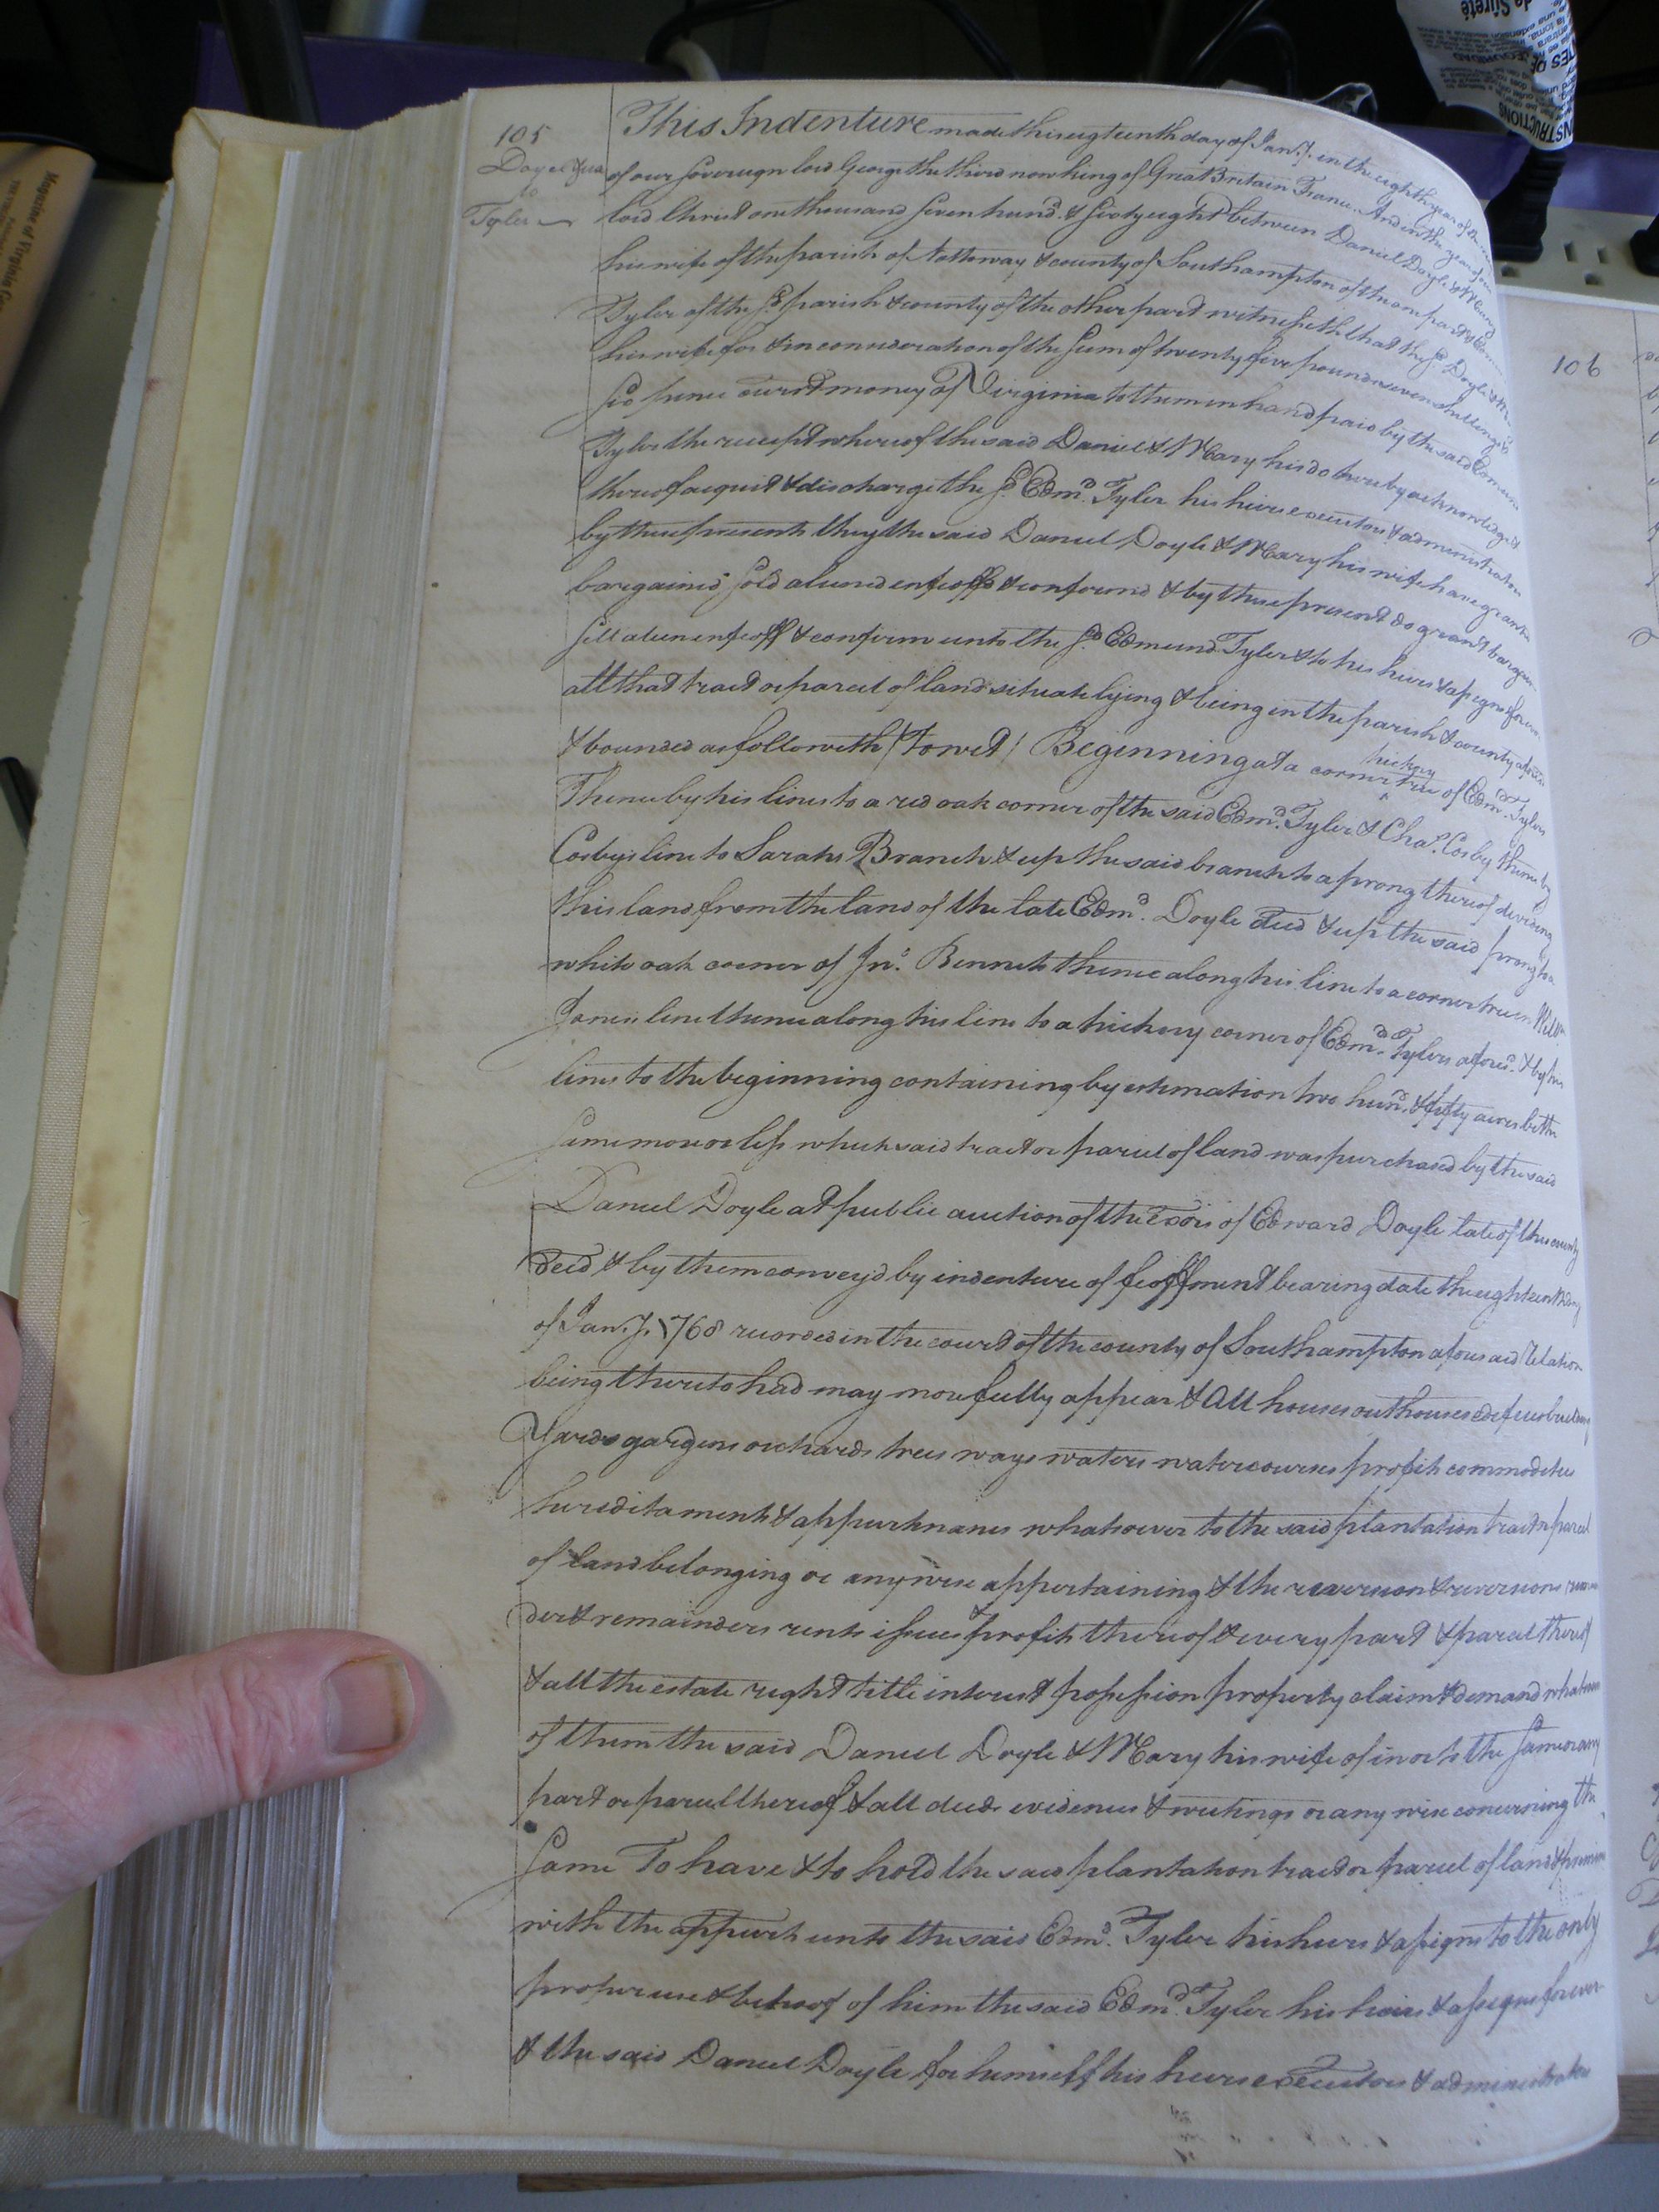 105
Doyel & ux
to
Tyler
This Indenture made this eigteenth day of Jan.y in the eighth year of the
of our sovereign lord George the third now king of Great Britain France. And in the year of our
lord Christ one thousand seven hund.d & sixty eight between Daniel Doyle & Mary
his wife of the parish of Nottoway & county of Southampton of the one part &
Tyler of the s.d parish & county of the other part witnesseth that the s.d Doyle &
his wife for & in consideration of the sum of twenty five pounds seven shillings &
six pence curr.t money of Virginia to them in hand paid by the said Edmund
Tyler the receipt whereof the said Daniel & Mary his do hereby acknowledge &
thereof acquit & discharge the s.d Edm.d Tyler his heirs executors & administrators
by these presents they the said Daniel Doyle & Mary his wife have granted
bargained sold aliened enfeoff'd & confirmd & by these present do grant bargain
sell alien enfeoff & confirm unto the s.d Edmund Tyler & to his heirs & assigns forever
all that tract or parcel of land situate lying & being in the parish & county afores.d
& bounded as followeth (Towit) Beginning at a corner hickory tree of Edm.d Tylers
Thence by his lines to a red oak corner of the said Edm.d Tyler & Cha.s Cosby thence by
Cosbys line to Sarahs Branch & up the said branch to a prong thereof dividing
this land from the land of the late Edm.d Doyle deed & up the said prong to a
white oak corner of Jn.o Bennets thence along his line to a corner tree in Will.m
Jones's line thence along his line to a hickory corner of Edm.d Tylers afores.d & by his
lines to the beginning containing by estimation two hun.d & fifty acres be the
same more or less which said tract or parcel of land was purchased by the said
Daniel Doyle at public auction of the Exors of Edward Doyle late of this county
decd & by them convey'd by indenture of feoffment bearing date the eighteenth day
of Jan.y. 1768 recorded in the court of the county of Southampton aforesaid relation
being thereto had may more fully appear & All houses outhouses edifices buildings
Yards gardens orchards trees ways waters watercourses profits commodities
hereditaments & appurtenances whatsoever to the said plantation tract or parcel
of land belonging or any wise appertaining & the reversion & reversions remain
der & remainders rents issues & profits thereof & every part & parcel thereof
& all the estate right title interest possession property claim & demand whatsoever
of them the said Daniel Doyle & Mary his wife of in or to the same or any
part or parcel thereof & all deeds evidences & writings or any wise concerning the
same To have & to hold the said plantation tract or parcel of land & premises
with the appurts unto the said Edm.d Tyler his heirs & assigns to the only
proper use & behoof of him the said Edm.d Tyler his heirs & assigns forever
& the said Daniel Doyle for himself his heirs executors & administrators
106
Magazine of Virginia
de Sûreté